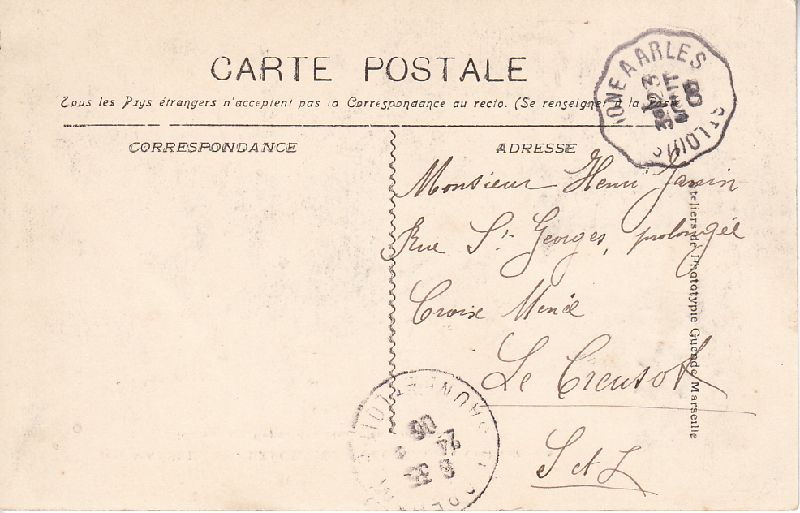 CARTE POSTALE
Tous les Pays étrangers n'acceptent pas la Correspondance au recto. (Se renseigner à la Poste
CORRESPONDANCE
ADRESSE
Monsieur Henri Janin
Rue St Georges, prolongée
Croix Menée
Le Creusot
S et L
teliers de Phototypie Guende Marseille
A ARLES
ST LOUIS